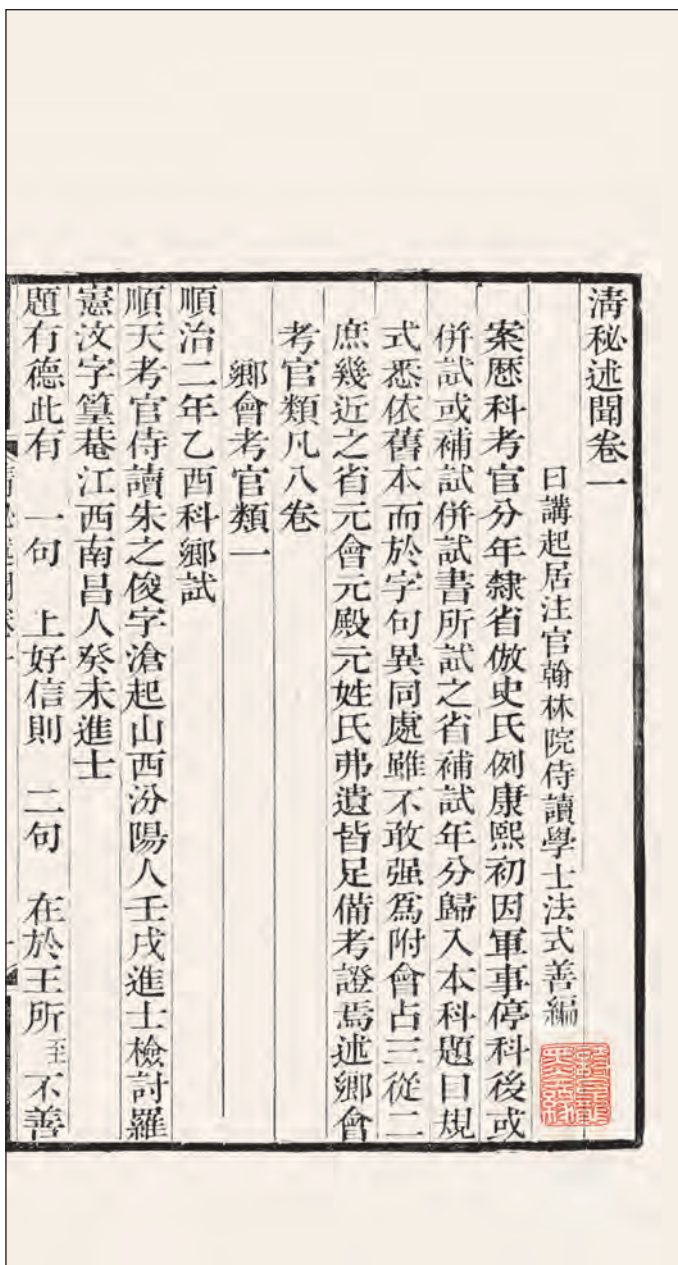 清秘述聞卷一
日講起居注官翰林院侍讀學士法式善編
案歷科考官分年隸省倣史氏例康熙初因軍事停科後或
併試或補試併試書所試之省補試年分歸入本科題目規
式悉依舊本而於字句異同處雖不敢强爲附會占三從二
庶幾近之省元會元殿元姓氏弗遺皆足備考證焉述鄉會
考官類凡八卷
鄉會考官類一
順治二年乙酉科鄉試
順天考官侍讀朱之俊字滄起山西汾陽人壬戌進士檢討羅
憲汶字篁菴江西南昌人癸未進士
題有德此有　一句　上好信則　二句　在於王所至不善